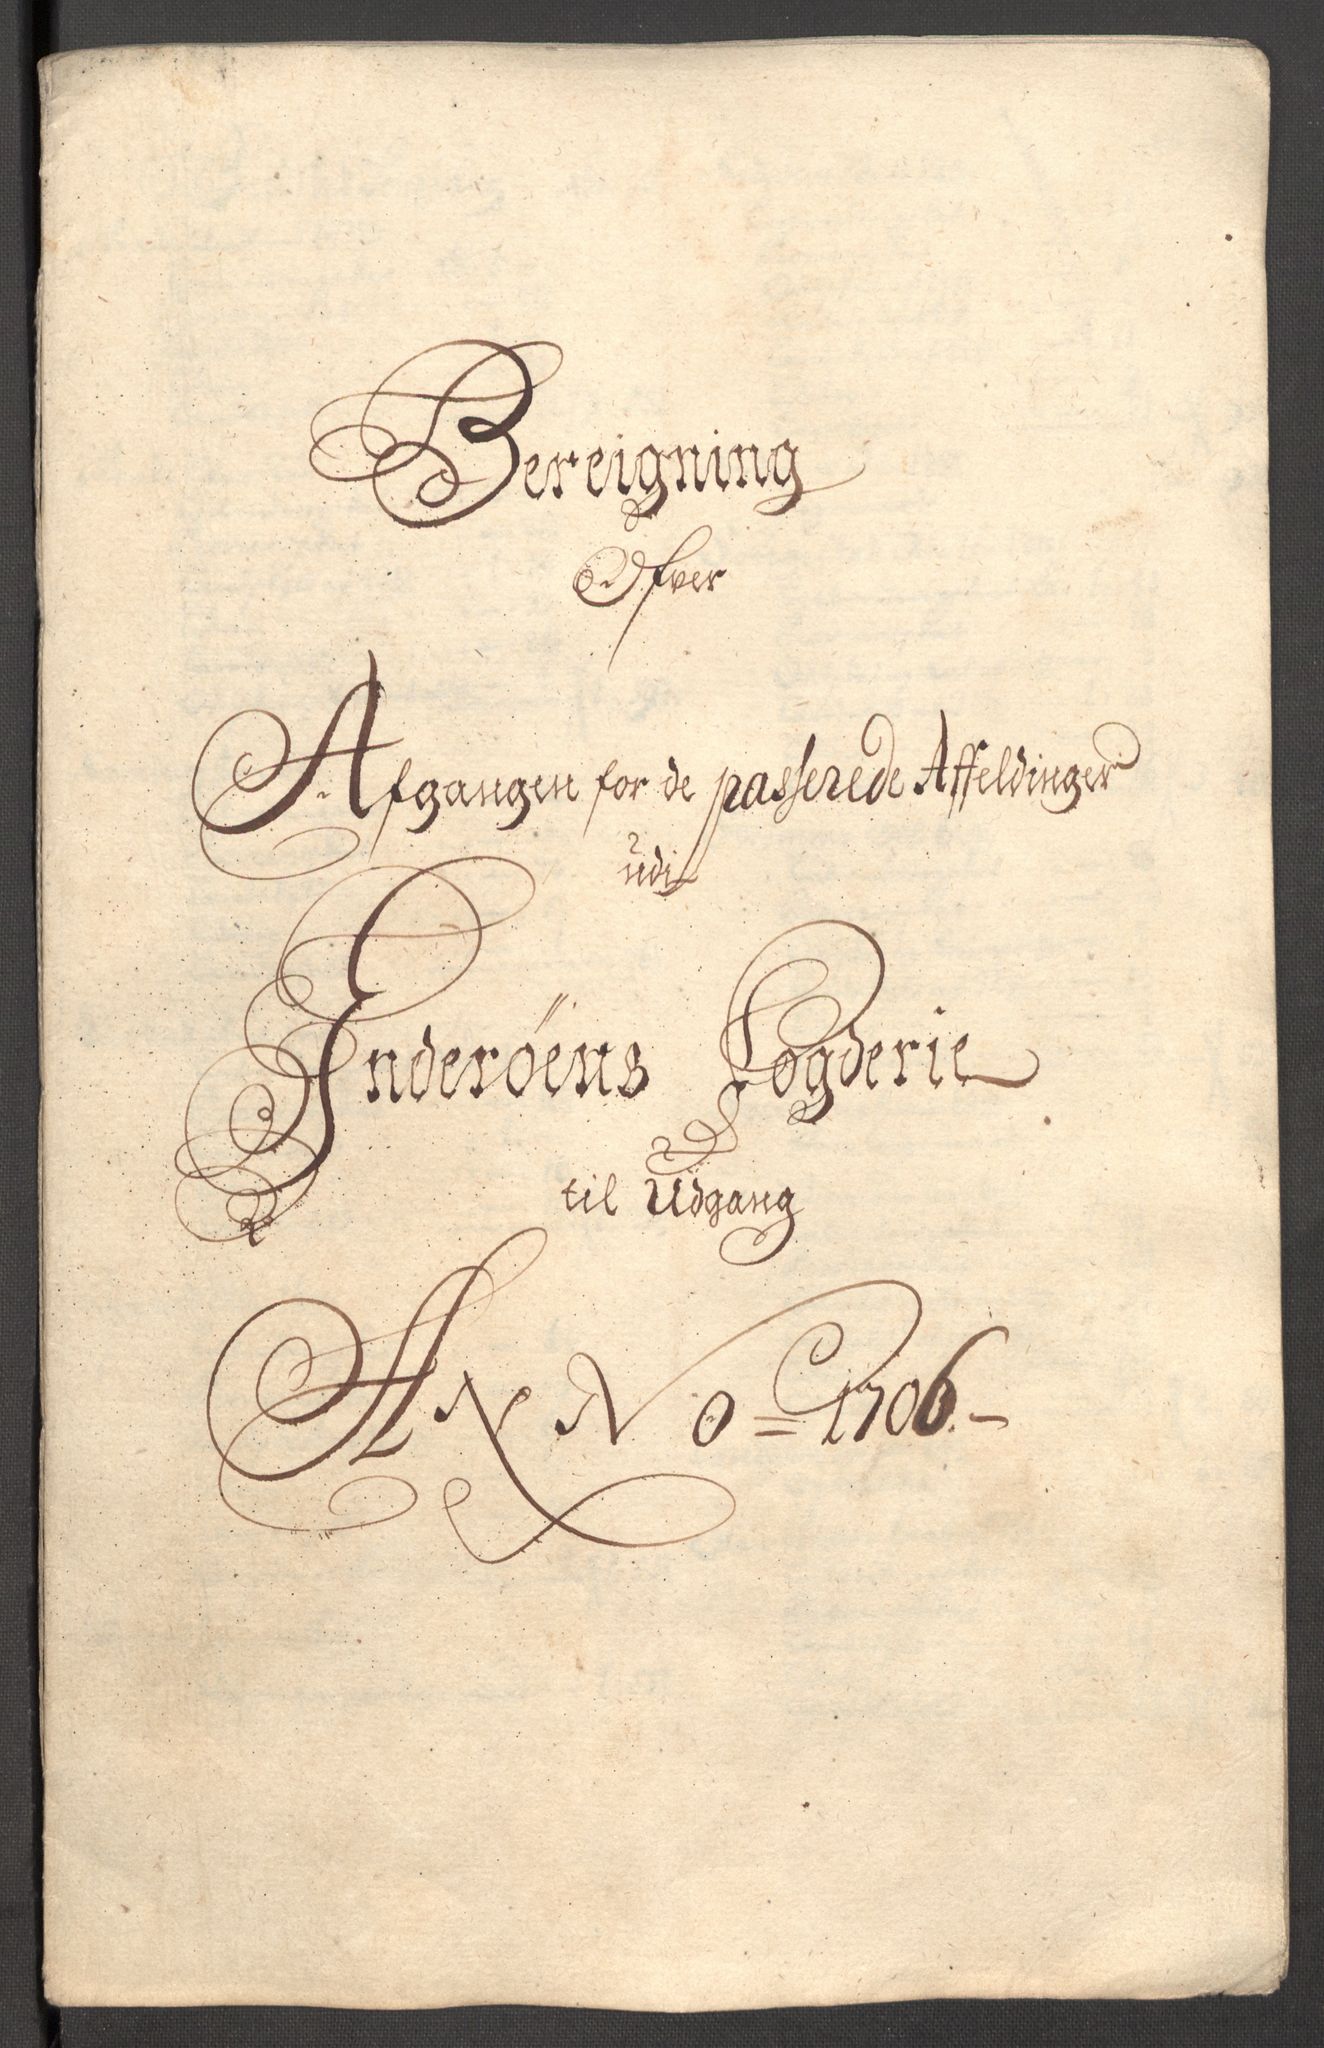 Bereigning
Ofver
Afgangen for de passerede Affeldinger
udj
Inderöens Fogderie
til Udgang
ANNO = 1706.-